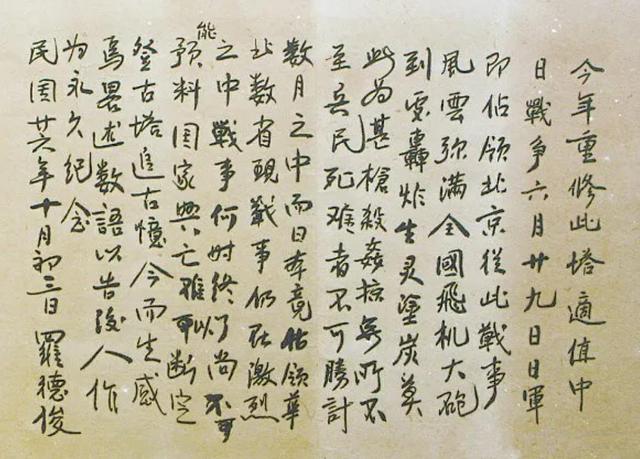 今年重修此塔適值中
日戰争六月廿九日日軍
即佔領北京從此戰事
風雲弥满全國飛机大砲
到處轟炸生灵塗炭莫
此为甚槍殺姦掠無所不
至兵民死难者不可勝計
数月之中而日本竟佔領華
北数省現戰事仍在激烈
之中戰事何时终了尚不可
能预料国家興亡難以断定
登古塔追古憶今而生感
焉畧述数語以告後人作
为永久纪念
民国廿六年十月初三日 羅德俊